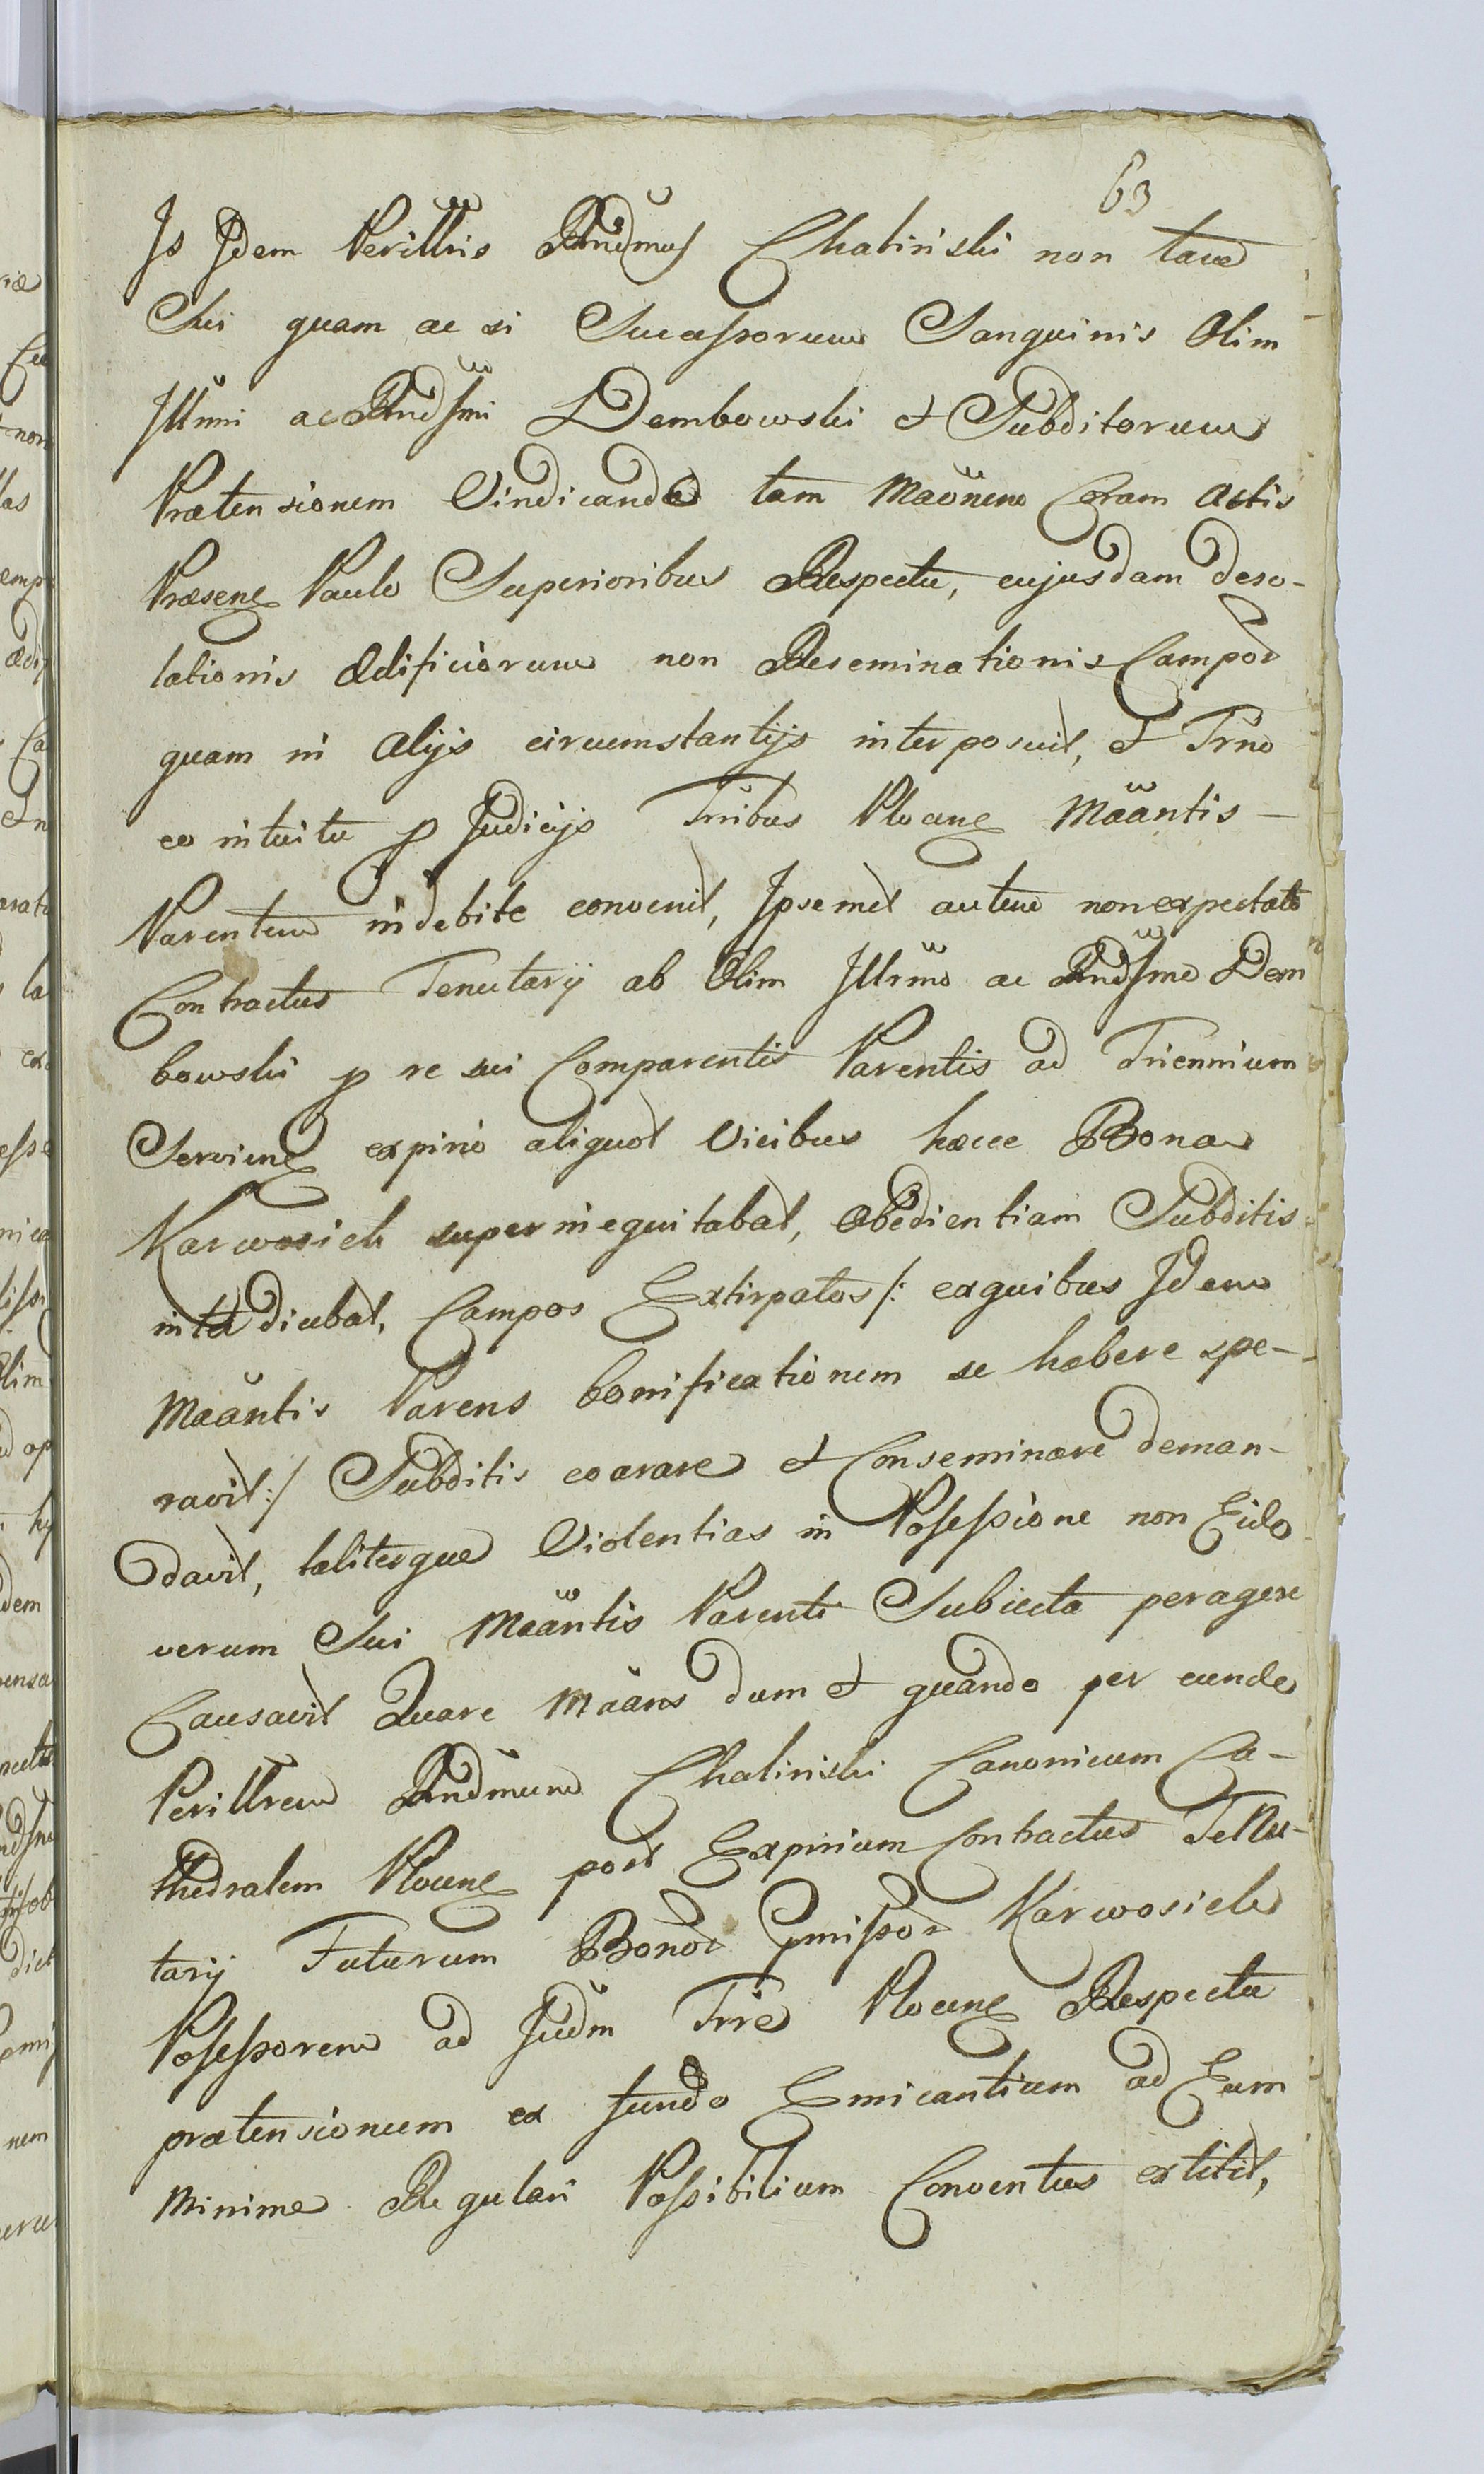 63
Is Idem Perillris Rndmus Chalinski non tam
Sui quam ac si Sucessorum Sanguinis Olim
Illmi ac Rndsmi Dembowski et Subditorum
Prætensionem Vindicando tam Maönem Coram Actis
Præsene Paulo Superioribus Respectu, cujusdam deso-
lationis Ædificiorum non Reseminationis Campor
quam in Alijs circumstantijs interposuit, et Trno
eo intuitu p Judicijs Tribus Plocene Mäantis -
Parentem indebite convenit, Ipsemet autem non expectato
Contractus Tenutarij ab Olim Illrmo ac Rndsmo Dem
bowski p re sui Comparentis Parentis ad Triennium
Serviene expirio aliquot Vicibus hæcce Bona
Karwosiek superinequitabat, Obedientiam Subditis
interdicebat, Campos Extirpatos /: ex quibus Idem
Mäantis Parens bonificationem se habere spe-
ravit :/ Subditis exarare et Conseminare deman-
davit, taliterque Violentias in Possessione non Eido
verum Sui Mäantis Parenti Subiecta peragere
Causavit Quare Mäans dum et quando per eunde
Perillrem Rndmum Chalinski Canonicum Ca-
thedralem Plocene post Expirium Contractus Tenu-
tarij Futurum Bonor pmissor Karwosiek
Possessorem ad Judm Trre Plocene Respectu
prætensionum ex fundo Emicantium ad Eum
minime Regulari Possibilium Conventus extitit,